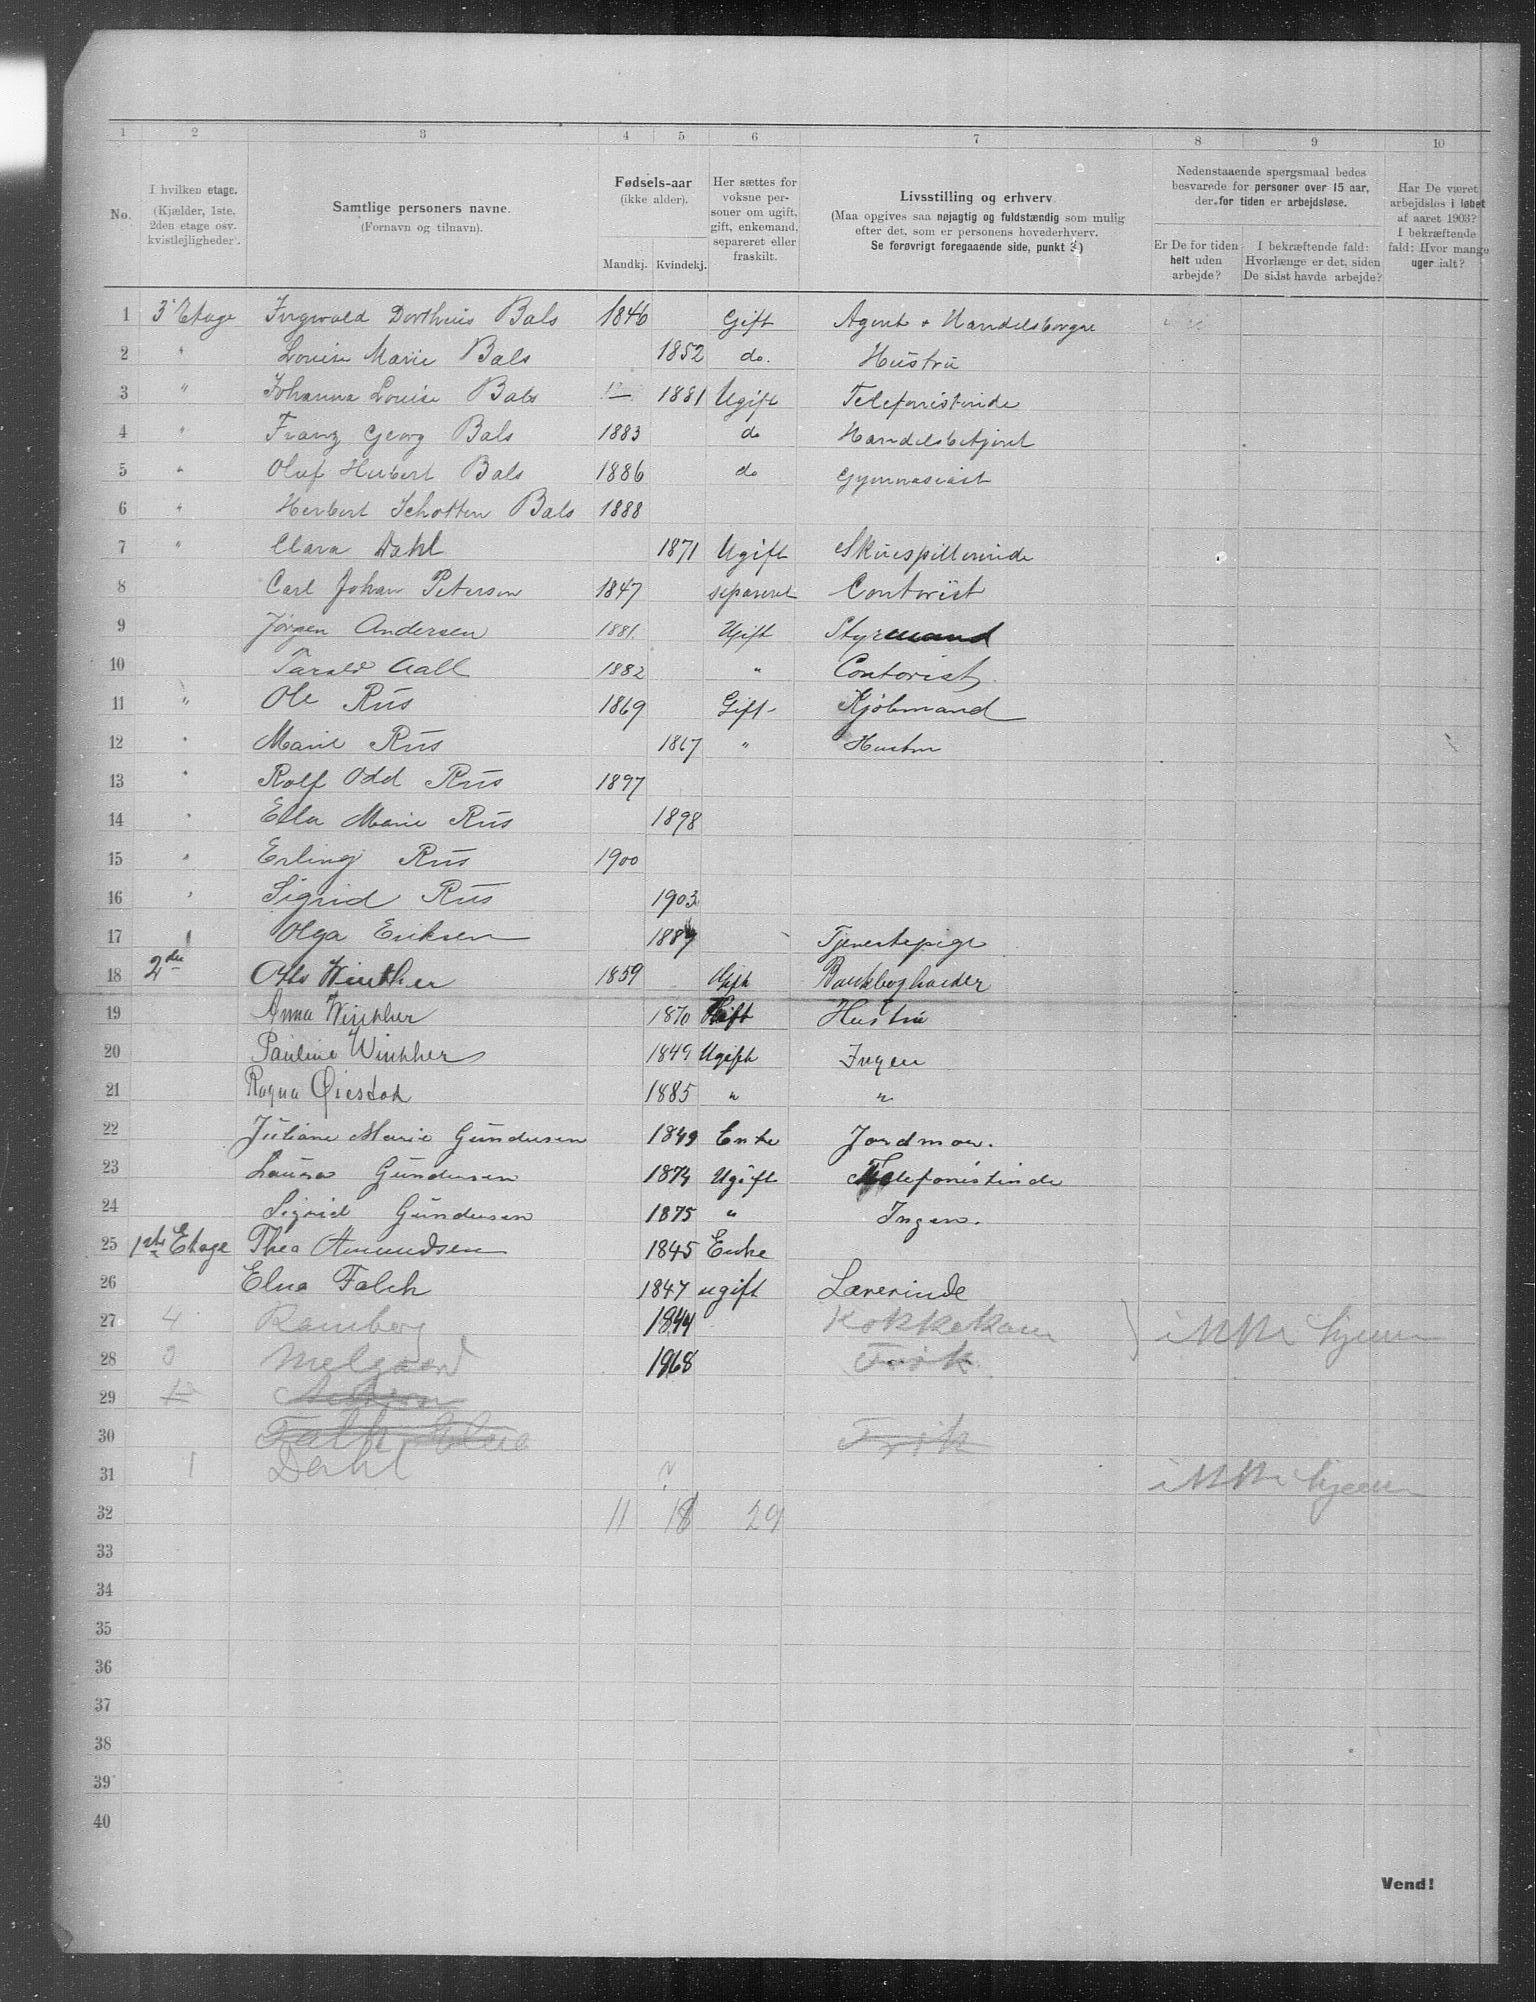 1 2 3 4 5 6 7 8 9 10
No.
I hvilken etage. (Kjælder, 1ste, 2den etage osv. kvistlejligheder).
Samtlige personers navne. (Fornavn og tilnavn).
Fødsels-aar (ikke alder).
Mandkj. Kvindekj.
Her sættes for voksne personer om ugift, gift, enkemand, separeret eller fraskilt.
Livsstilling og erhverv (Maa opgives saa nøjagtig og fuldstændig som mulig efter det, som er personens hovederhverv. Se forøvrigt foregaaende side, punkt 3)
Nedenstaaende spørgsmaal bedes besvarede for personer over 15 aar, der for tiden er arbejdsløse.
Er De for tiden helt uden arbejde?
I bekræftende fald: Hvorlænge er det, siden De sidst havde arbejde?
Har De været arbejdsløs i løbet af aaret 1903? I bekræftende fald: Hvor mange uger ialt?
1 3' Etage Ingwald Dorthius Bals 1846 Gift Agent + Handelsborger
2 " Louise Marie Bals 1852 do. Hustru
3 " Johanna Louise Bals 1881 Ugift Telefonistinde
4 " Franz Georg Bals 1883 do Handelsbetjent
5 " Oluf Herbert Bals 1886 do Gymnasiast
6 " Herbert Schotten Bals 1888
7 " Clara Dahl 1871 Ugift Skuespillerinde
8 Carl Johan Petersen 1847 separeret Contorist
9 Jörgen Andersen 1881. Ugift Styrmand
10 Tarald Aall 1882 " Contorist.
11 " Ole Riis 1869 Gift Kjøbmand
12 " Marie Riis 1867 " Hustru
13 " Rolf Odd Riis 1897
14 " Ella Marie Riis 1898
15 " Erling Riis 1900
16 " Sigrid Riis 1903
17 Olga Eriksen 1889 Tjenestepige
18 2den Winther 1859 Gift Bankbogholder
19 Anna Winther 1870 Gift Hustru
20 Pauline Winther 1849 Ugift Ingen
21 Ragna Øiestad 1885 " "
22 Juliane Marie Gundersen 1849 Enke Jordmor.
23 Laura Gundersen 1874 Ugift Telefonistinde
24 Sigrid Gundersen 1875 " Ingen.
25 1ste Etage Thea Amundsen 1845 Enke
26 Elna Falch 1847 ugift Lærerinde
27 4 Ramberg 1844 ikke hjemme
28 Melgaard 1868 Frøk.
29
30 Falk, Elna Frøk
31 1 Dahl ikke hjemme
32 11 18 29
33
34
35
36
37
38
39
40
Vend!